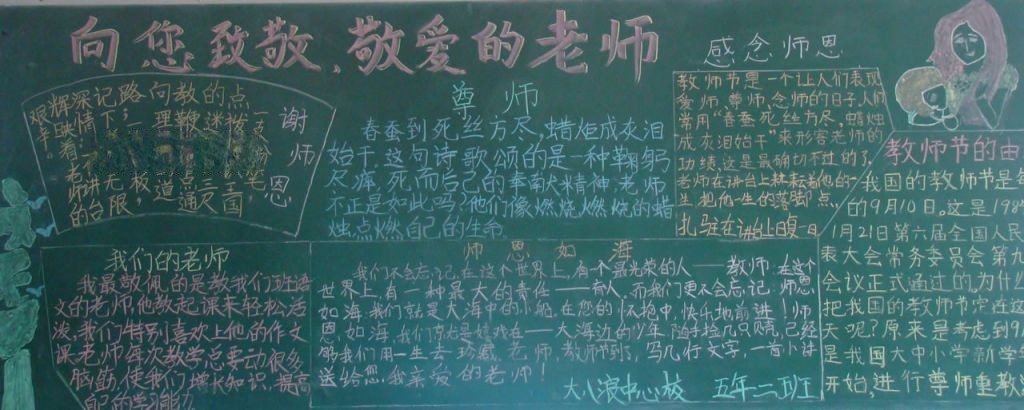 向您致敬,敬爱的老师
谢师恩
尊师
春蚕到死丝方尽,蜡炬成灰泪
始干,这句诗歌颂的是一种鞠躬
尽瘁,死而后已的奉献精神,老师
不正是如此吗?他们像燃烧燃烧的蜡
烛,点燃自己的生命
感念师恩
教师节是一个让人们表现
爱师、尊师、念师的日子,人们
常用“春蚕到死丝方尽,蜡烛
成灰泪始干”来形容老师的
功绩,这是最确切不过的了,
老师在讲台上耕耘着他的一
生,把他一生的落脚点,
扎驻在讲台上
教师节的由
我国的教师节是每
的9月10日。这是198
1月21日第六届全国人民
表大会常务委员会第九
会议正式通过的,为什么
把我国的教师节定在这
天呢?原来是考虑到9
是我国大中小学新学年
开始,进行尊师重教
我们的老师
我最敬佩的是教我们班语
文的老师,他教起课来轻松活
泼,我们特别喜欢上他的作文
课,老师每次教学总要动很多
脑筋,使我们增长知识,提高
自己的学习能力
师恩如海
我们不会忘记,在这个世界上,有个最光荣的人——教师,在这个
世界上,有一种最大的责任——育人,而我们更不会忘记,师恩
如海,我们就是大海中的小船,在您的怀抱中,快乐地前进!师
恩,如海,我们就是嬉戏在——大海边的少年,随手捡几只贝壳,已经
够我们用一生去珍藏,老师,教师节到,写几行文字,一首小诗
送给您,我亲爱的老师!
大八浪中心校 五年二班